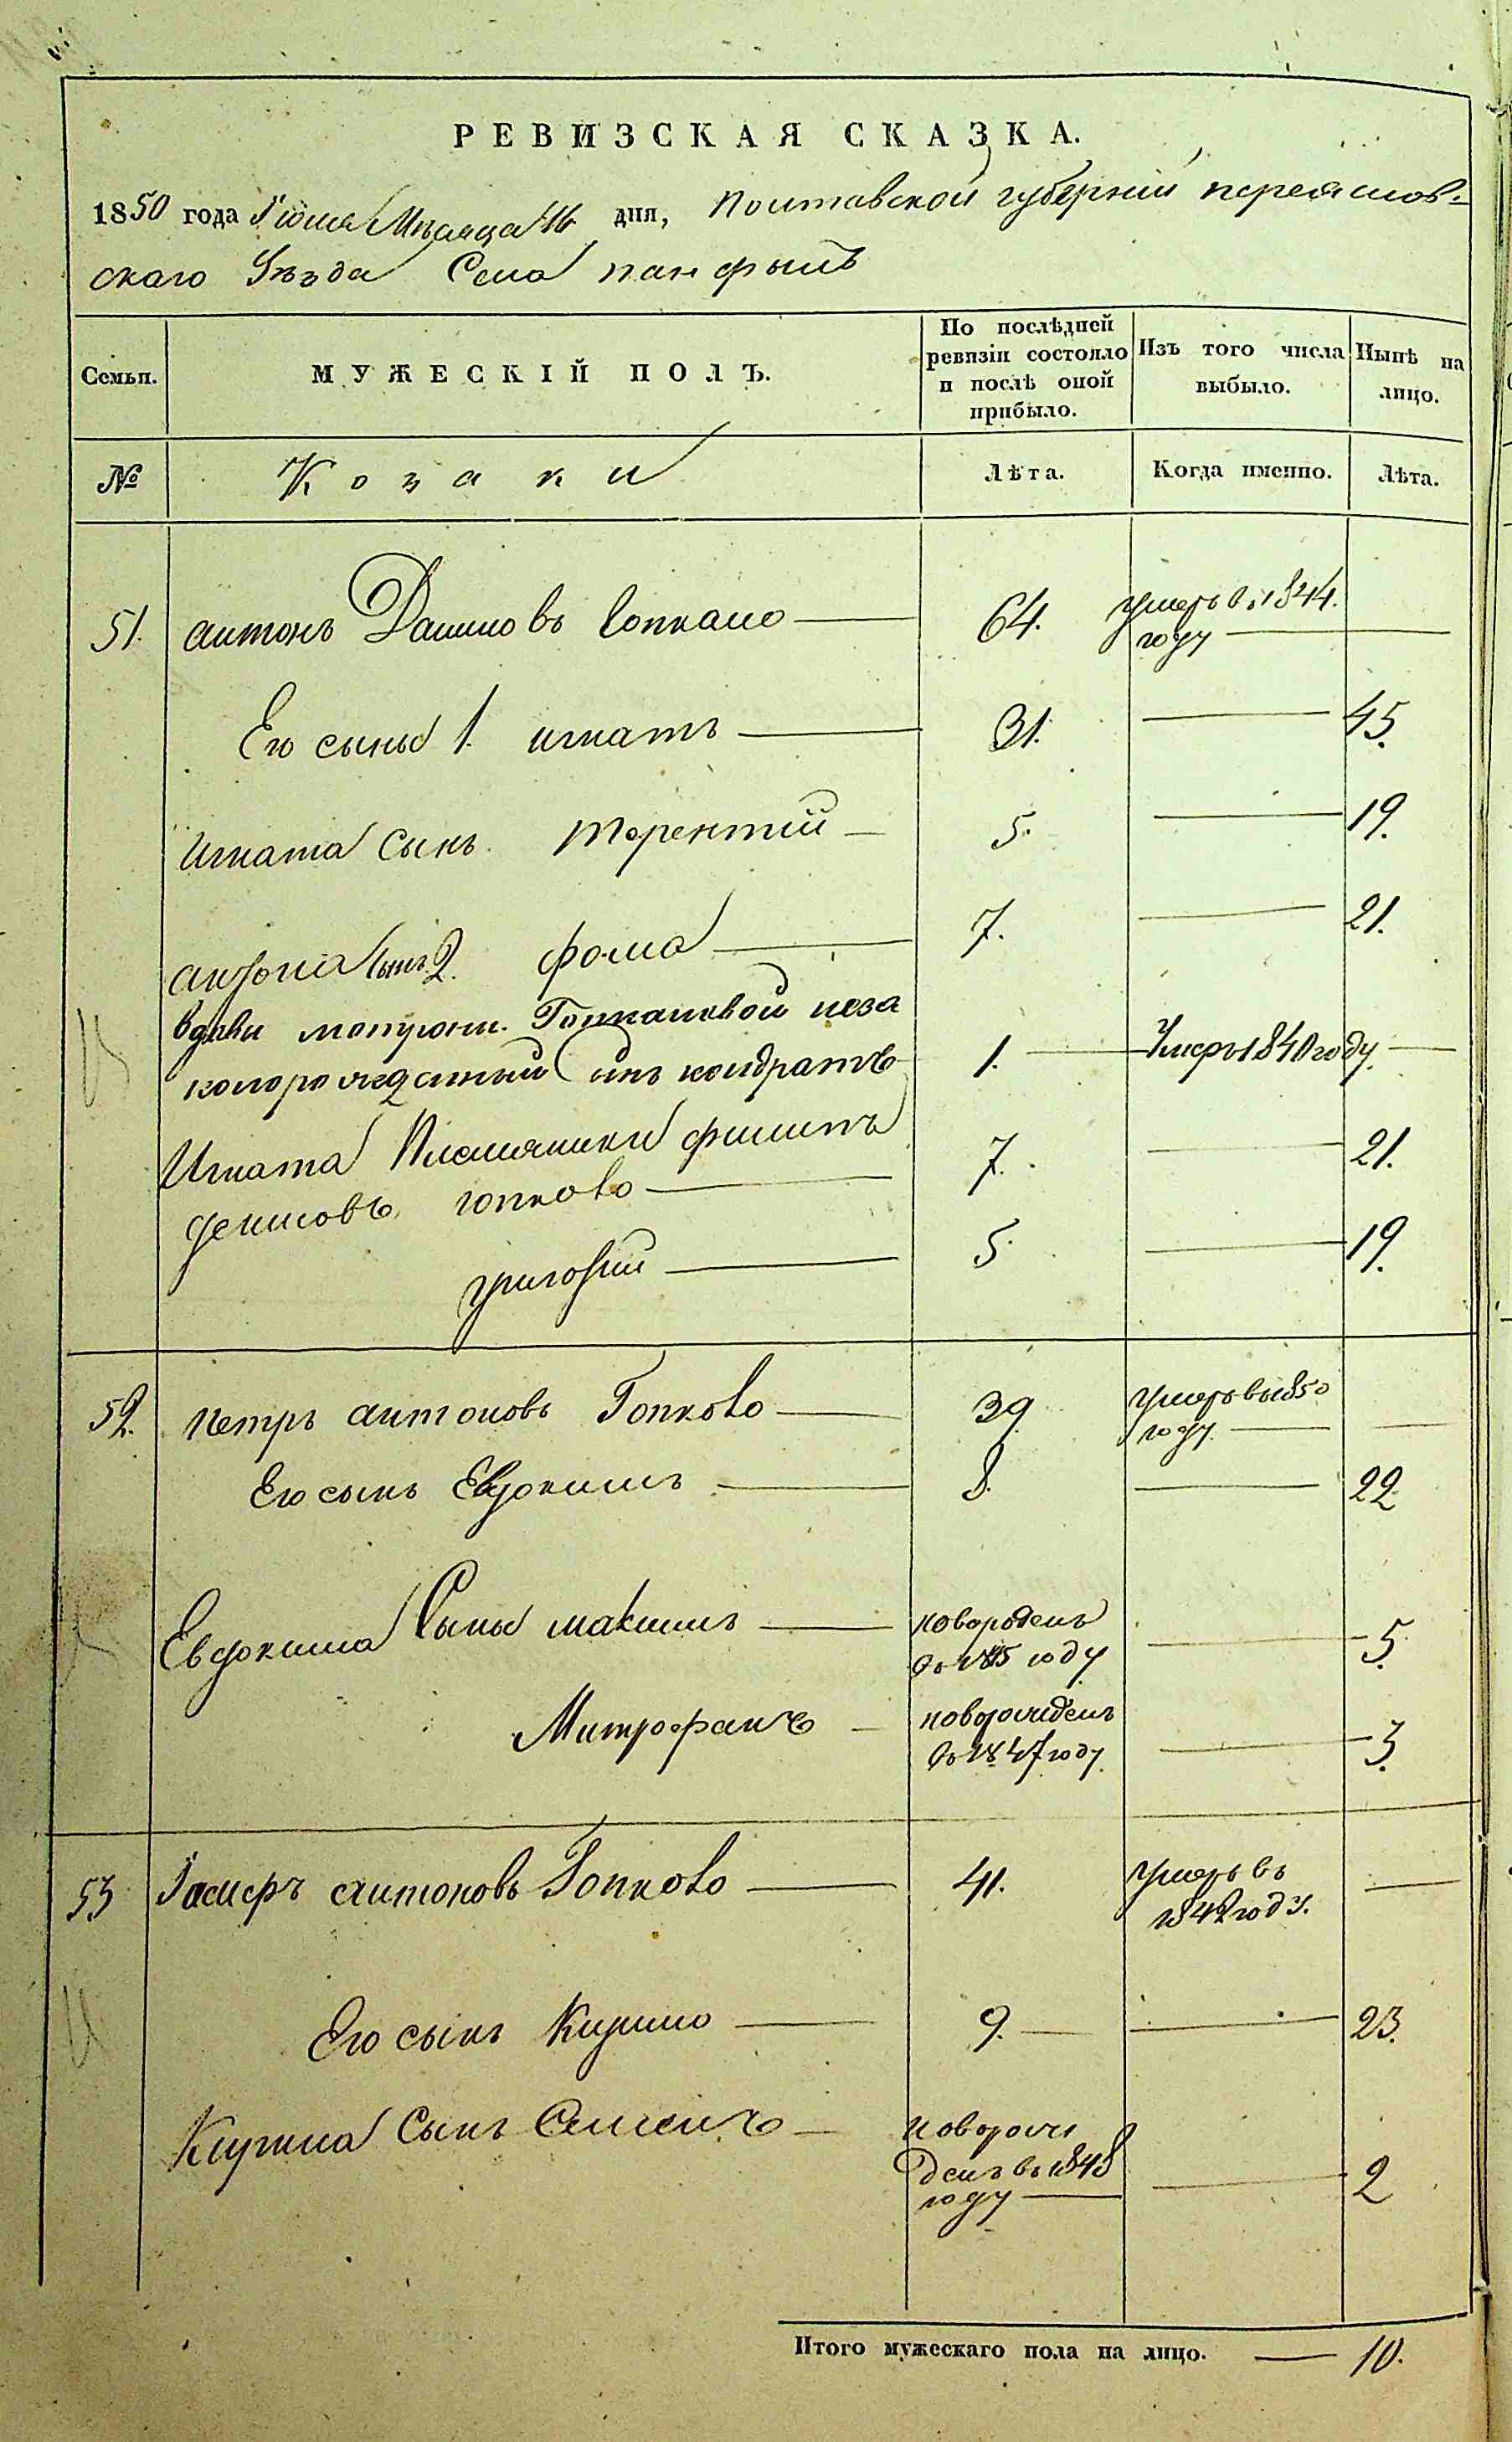 РЕВИЗСКАЯ СКАЗКА.
1850 года Іюня Мѣсяца 16 дня, Полтавской губерніи переяслов-
скаго Уѣзда Села панфылъ
Семьи.
МУЖЕСКІЙ ПОЛЪ.
По послѣдней ревизіи состояло и послѣ оной прибыло.
Изъ того числа выбыло.
Нынѣ на лицо.
№
Козаки
Лѣта.
Когда именно.
Лѣта.
51. антонъ Даниловъ 64. умеръ въ 1844.
году
Его сыны 1. игнатъ 31. 45.
Игната Сынъ терентій 5. 19.
антона Сынъ 2. фома 7. 21.
вдовы
незаконорожденный Сынъ кондратъ 1. Умеръ 1840 году.
Игната Племяники филипъ
денисовъ гопкало 7. 21.
григорій 5. 19.
52. петръ антоновъ Гопкало 39 умеръ въ 1850
году
Его сынъ Евдокимъ 8. 22
Евдокима Сыны максимъ новороденъ
въ 1845 году 5.
Митрофанъ новорожденъ
въ 1847 году. 3.
53 антоновъ Гопкало 41. умеръ въ
1842 году.
Его сынъ Кирило 9. 23.
Кирила Сынъ Семенъ новорож
денъ въ 1848
году 2
Итого мужескаго пола на лицо. 10.